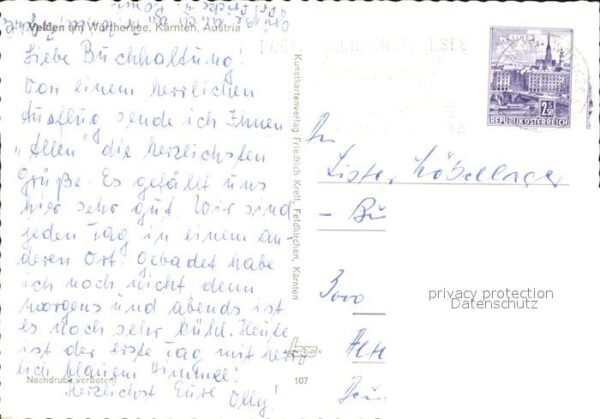 Velden am Wörthersee, Kärnten, Austria
Liebe Buchhaltung!
Von einem herrlichen
Ausflug sende ich Ihnen
"Allen" die herzlichsten
Grüße. Es gefällt uns
hier sehr gut. Wir sind
jeden Tag in einem an-
deren Ort. Gebadet habe
ich noch nicht denn
morgens und abends ist
es noch sehr kühl. Heute
ist der erste Tag mit herr
lich blauem Himmel!
Herzlichst Eure Olly!
Nachdruck verboten!
107
Kunstkartenverlag Friedrich Kreit, Feldkirchen, Kärnten
WIEN
2.50
REPUBLIK ÖSTERREICH
An
- Bü
privacy protection
Datenschutz